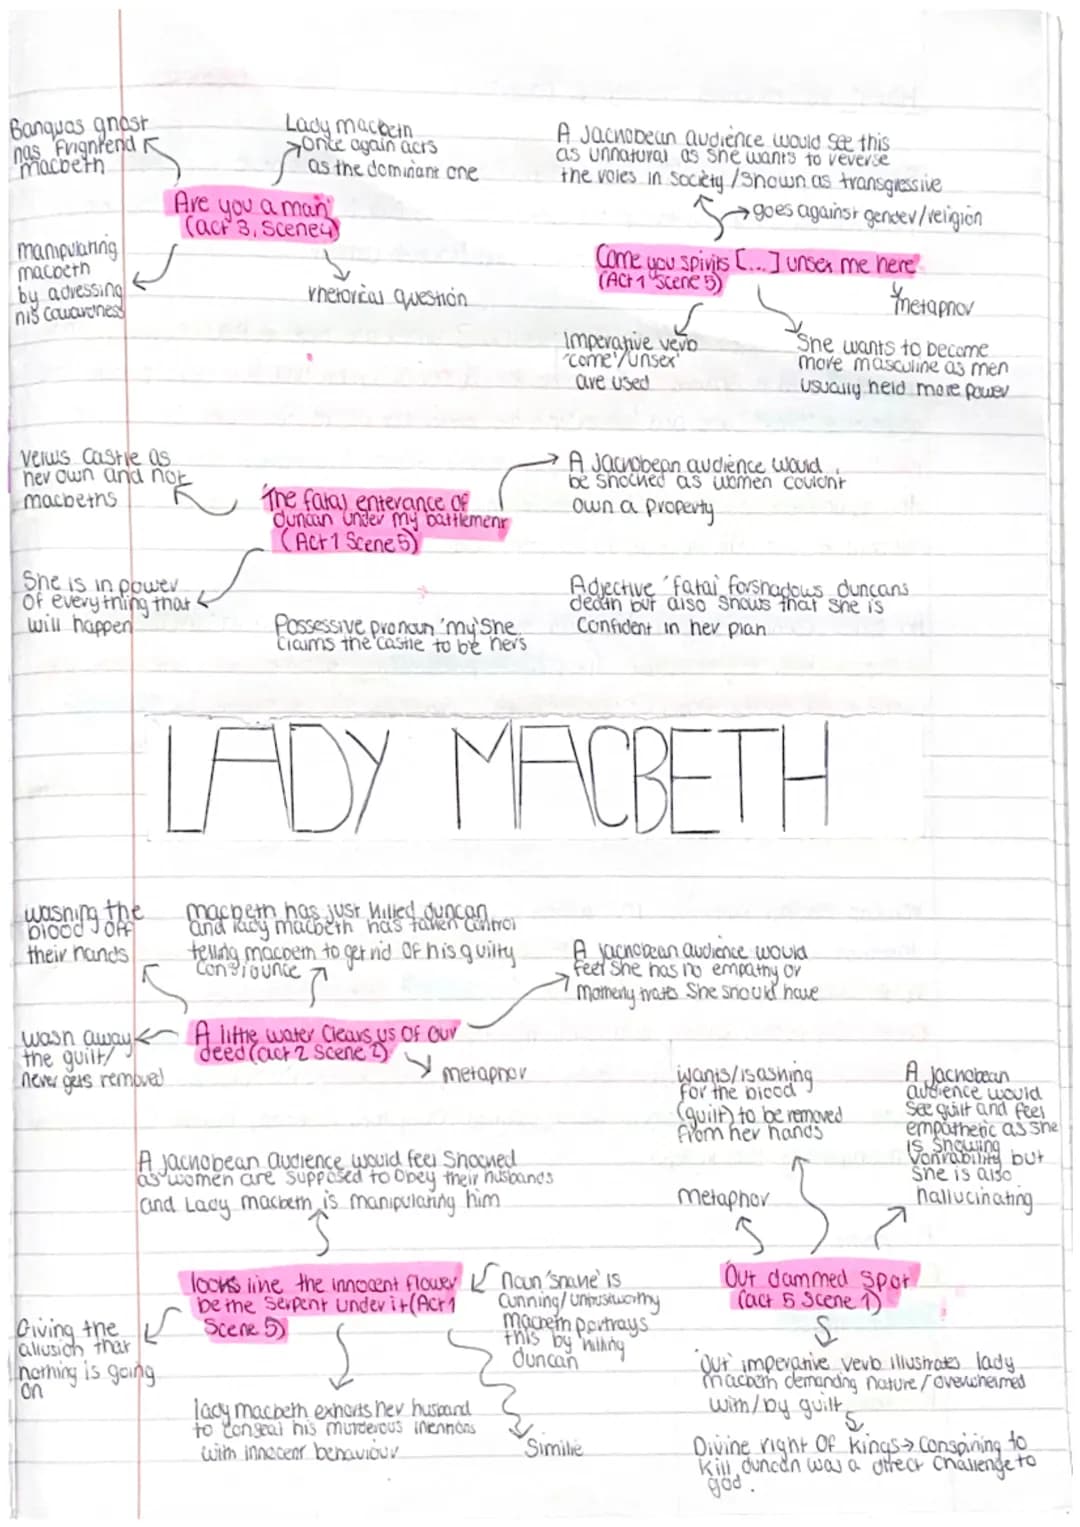 Banquos ghost
has frightend
macbeth
Lady macbeth
once again acts
as the dominant one
Are you a man'
(act 3, Scene4)
manipulating
macbeth
by adressing
his cowardness
rhetorical question
A Jachobean audience would see this
as unnatural as she wants to reverse
the roles in society / Shown as transgressive
goes against gender/religion
Come you spirits [...] unsex me here'
(Act 1 Scene 5)
metaphor
Imperative verb
'come'/'Unsex'
are used
She wants to become
more masculine as men
usually held more power
veiws castle as
her own and not
macbeths
'The fatal enterance of
duncan under my battlement
(Act 1 Scene 5)
A Jachobean audience would
be shocked as women couldnt
own a property
She is in power
of everything that
will happen
Possessive pronoun 'my' She
claims the castle to be hers
Adjective 'fatal' forshadows duncans
death but also shows that she is
confident in her plan
LADY MACBETH
washing the
blood off
their hands
macbeth has just killed duncan
and lady macbeth has taken control
telling macbeth to get rid of his guilty
consiounce
A jachobean audience would
feel she has no empathy or
motherly traits She should have
wash away
the guilt/
never gets removed
A little water Clears us Of Our
deed (act 2 Scene 2)
metaphor
wants/is asking
for the blood
(guilt) to be removed
from her hands
A jachobean
audience would
see guilt and feel
empathetic as she
is showing
vonrability but
she is also
hallucinating
A jachobean audience would feel Shocked
as women are supposed to obey their husbands
and Lady macbeth is manipulating him
metaphor
looks like the innocent flower
be the Serpent under it (Act 1
Scene 5)
noun 'snake' is
cunning/untrustworthy
macbeth portrays
this by killing
duncan
Out dammed spot'
(act 5 Scene 1)
Giving the
allusion that
nothing is going
on
lady macbeth exhorts her husband
to conseal his murderous intentions
with innocent behaviour
Similie
'Out' imperative verb illustrates lady
macbeth demanding nature / overwhelmed
with/by guilt
Divine right Of Kings→ Conspiring to
kill duncan was a direct challenge to
god.